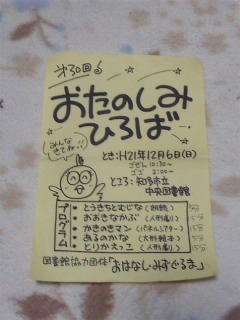 第30回
おたのしみ
ひろば
みんな
きてね!!
とき:H21年12月6日(日)
ごぜん10:30〜
ゴゴ 2:00〜
ところ:知多市立
中央図書館
プログラム
とうきちとむじな(朗読)
おおきなかぶ(人形劇) 15分
かきのきマン(パネルシアター) 15分
あるのかな(大型絵本) 5分
とりかえっこ(人形劇) 15分
図書館協力団体「おはなし・みすぐるま」